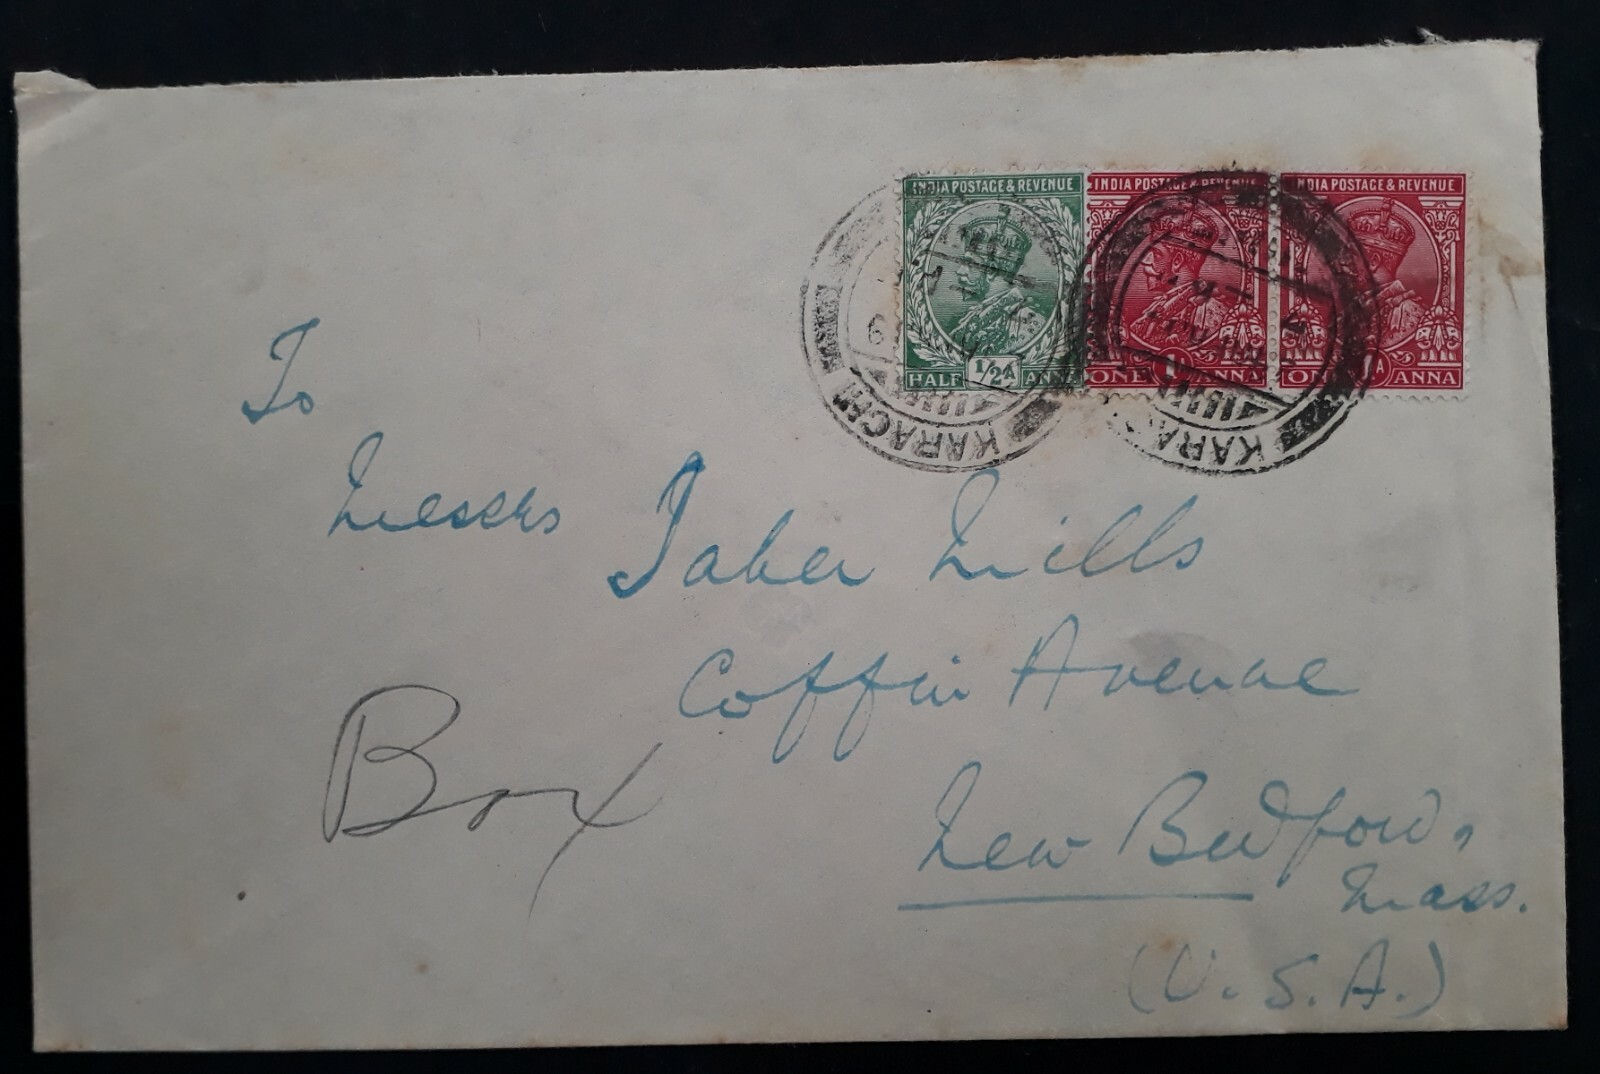 INDIA POSTAGE & REVENUE INDIA POSTAGE & REVENUE INDIA POSTAGE & REVENUE
HALF 1/2 A ANNA ONE 1 A ANNA ONE 1 A ANNA
KARACHI KARACHI
To
Messrs Taber Mills
Coffin Avenue
New Bedford,
Mass.
(U.S.A.)
Box